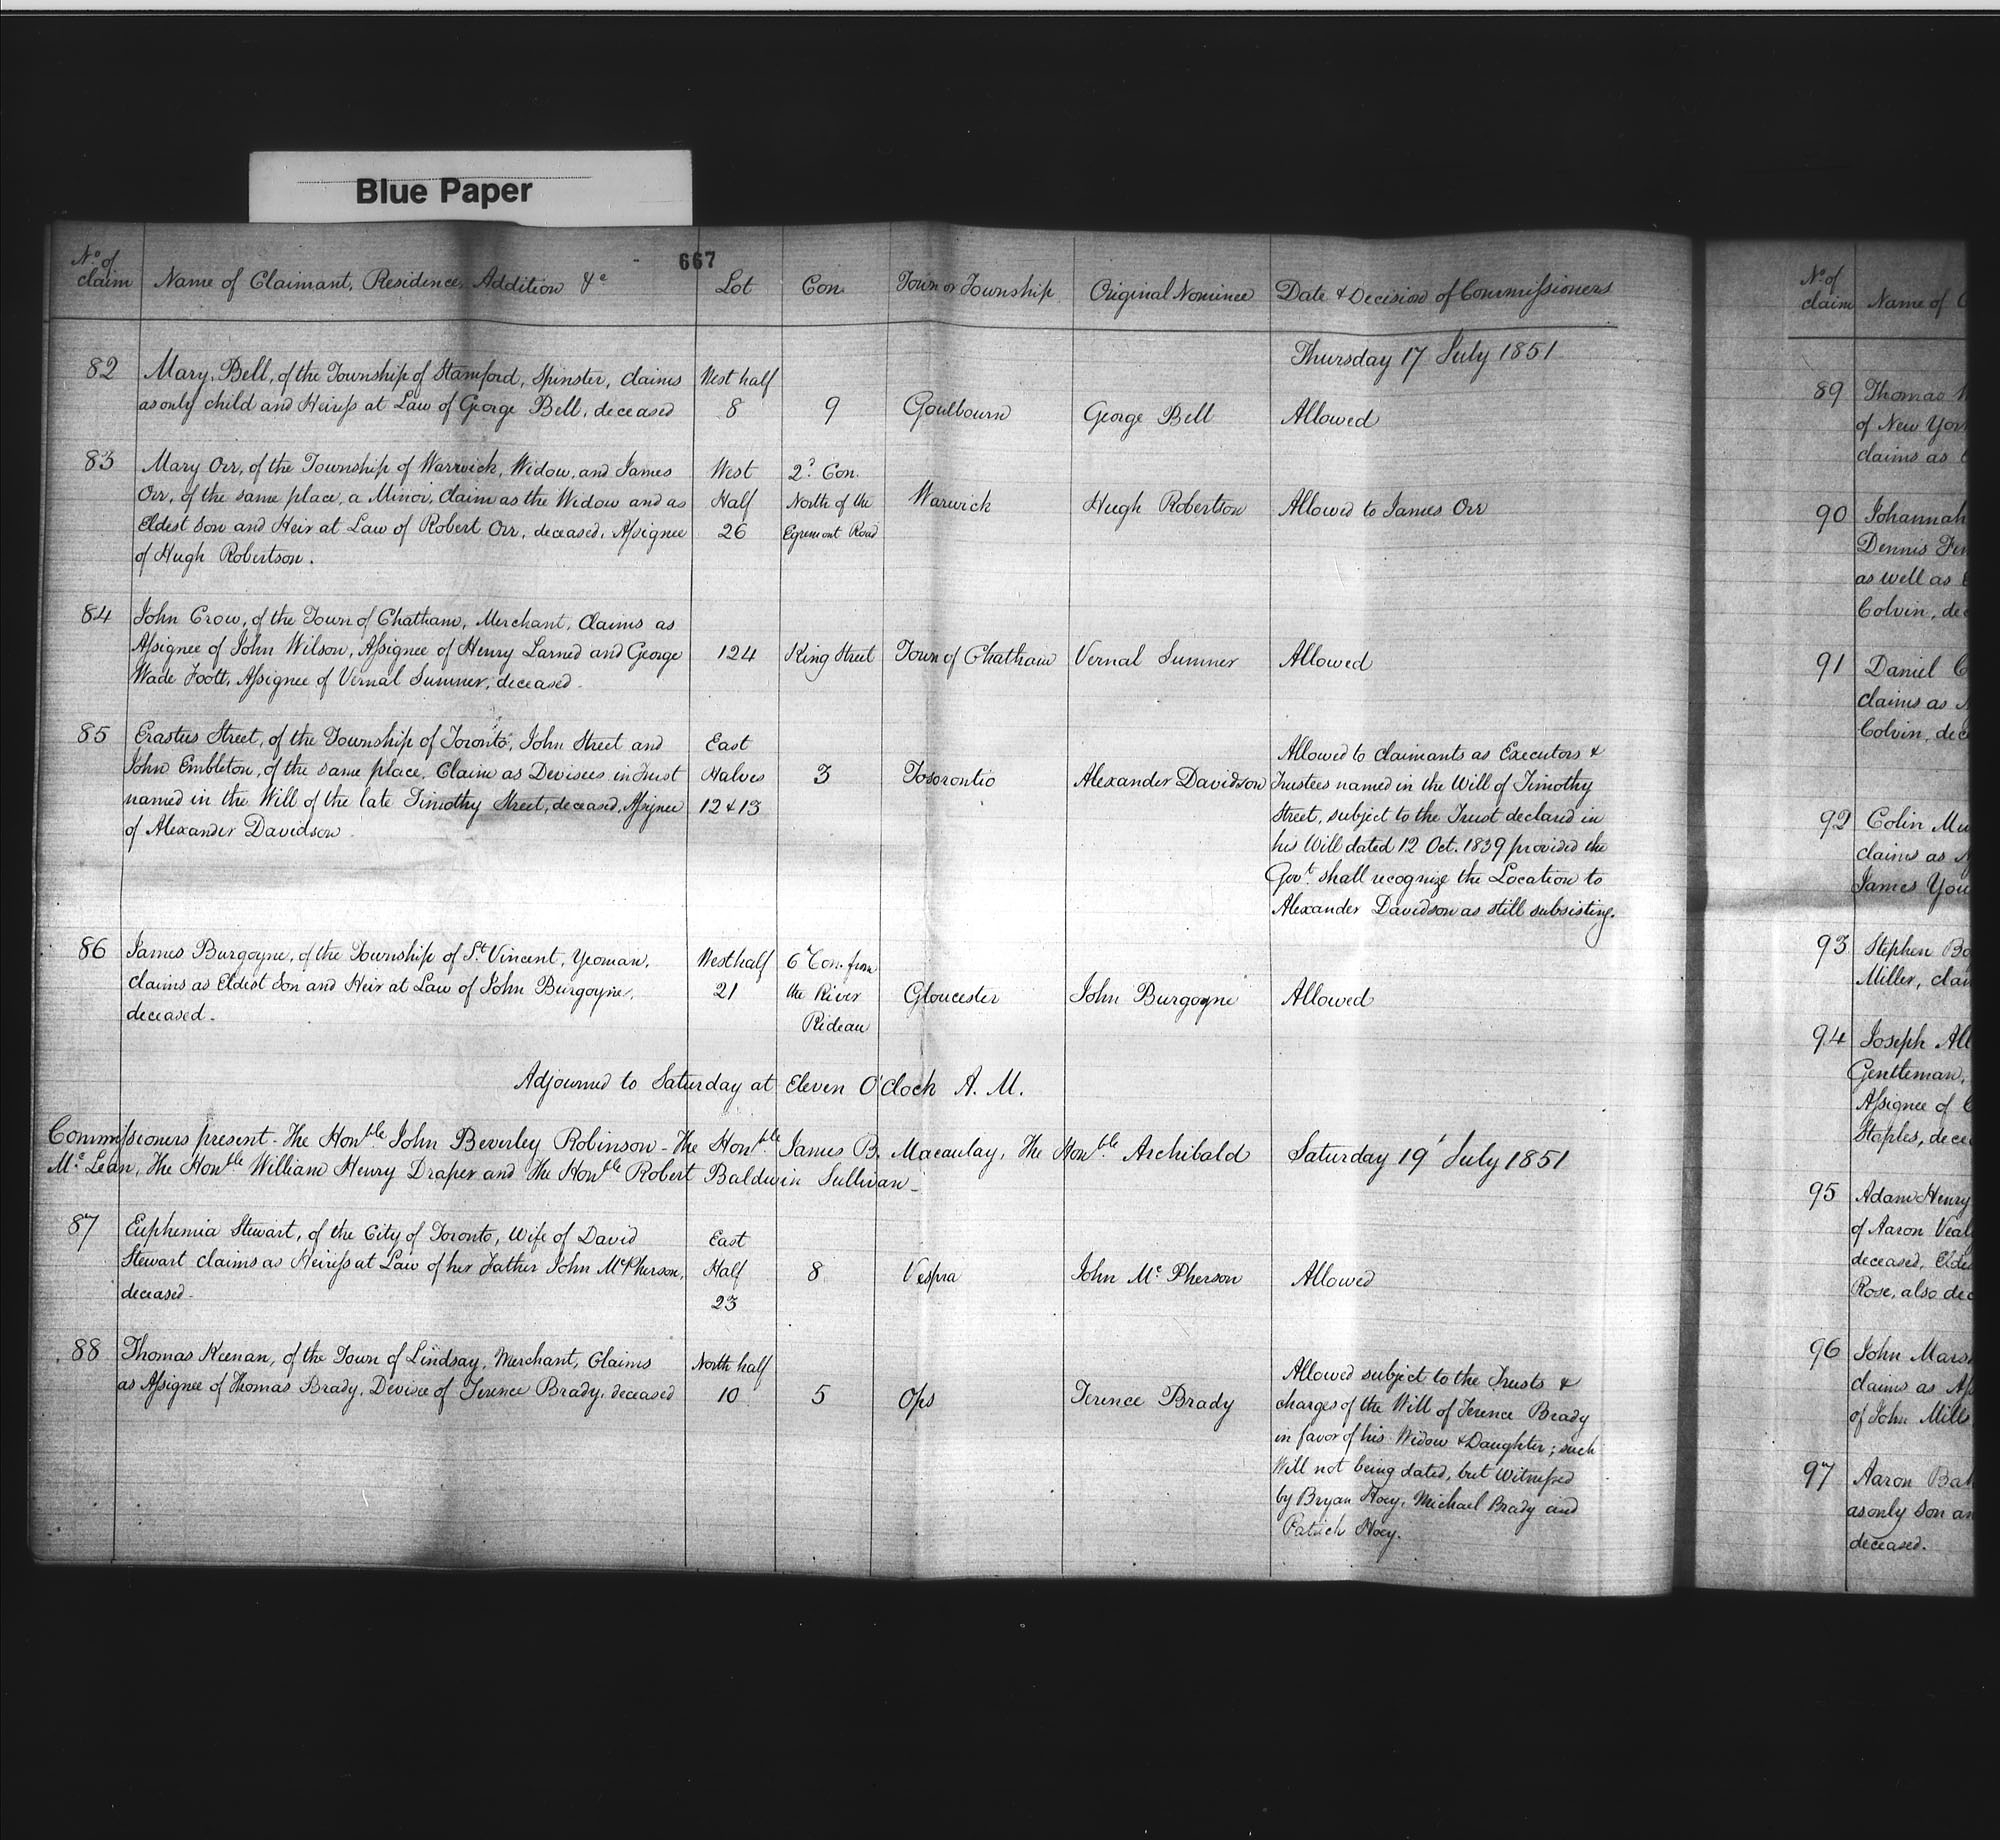 Blue Paper
667
No. of claim Name of Claimant, Residence, Addition &c Lot Con. Town or Township Original Nominee Date & Decision of Commissioners
Thursday 17 July 1851
82 Mary Bell, of the Township of Stamford, Spinster, claims West half
as only child and Heiress at Law of George Bell, deceased 8 9 Goulbourn George Bell Allowed
83 Mary Orr, of the Township of Warwick, Widow, and James West 2d Con.
Orr, of the same place, a Minor, claim as the Widow and as Half North of the Warwick Hugh Robertson Allowed to James Orr
Eldest Son and Heir at Law of Robert Orr, deceased, Assignee 26 Egremont Road
of Hugh Robertson.
84 John Crow, of the Town of Chatham, Merchant, Claims as
Assignee of John Wilson, Assignee of Henry Larned and George 124 King Street Town of Chatham Vernal Sumner Allowed
Wade Foott, Assignee of Vernal Sumner, deceased.
85 Erastus Street, of the Township of Toronto, John Street and East Allowed to claimants as Executors &
John Embleton, of the same place, Claim as Devisees in Trust Halves 3 Tosorontio Alexander Davidson Trustees named in the Will of Timothy
named in the Will of the late Timothy Street, deceased, Assignee 12 & 13 Street, subject to the Trust declared in
of Alexander Davidson his Will dated 12 Oct. 1839 provided the
Govt. shall recognize the Location to
Alexander Davidson as still subsisting.
86 James Burgoyne, of the Township of St. Vincent, Yeoman, West half 6 Con. from
claims as Eldest Son and Heir at Law of John Burgoyne, 21 the River Gloucester John Burgoyne Allowed
deceased. Rideau
Adjourned to Saturday at Eleven O'Clock A. M.
Commissioners present - The Honble John Beverley Robinson - The Honble James B. Macaulay, The Honble Archibald Saturday 19 July 1851
McLean, The Honble William Henry Draper and The Honble Robert Baldwin Sullivan -
87 Euphemia Stewart, of the City of Toronto, Wife of David East
Stewart claims as Heiress at Law of her Father John McPherson, Half 8 Vespra John McPherson Allowed
deceased. 23
88 Thomas Keenan, of the Town of Lindsay, Merchant, Claims North half Allowed subject to the Trusts &
as Assignee of Thomas Brady, Devisee of Terence Brady, deceased 10 5 Ops Terence Brady charges of the Will of Terence Brady
in favor of his Widow & Daughter; such
Will not being dated, but Witnessed
by Bryan Hoey, Michael Brady and
Patrick Hoey.
No. of
claim Name of
89 Thomas
of New York
claims as
90 Johannah
Dennis
as well as
Colvin,
91 Daniel
claims as
Colvin,
92 Colin
claims as
James
93 Stephen
Miller,
94 Joseph
Gentleman,
Assignee of
Staples,
95 Adam Henry
of Aaron
deceased,
Rose, also
96 John
claims as
of John Mills
97 Aaron
as only Son
deceased.